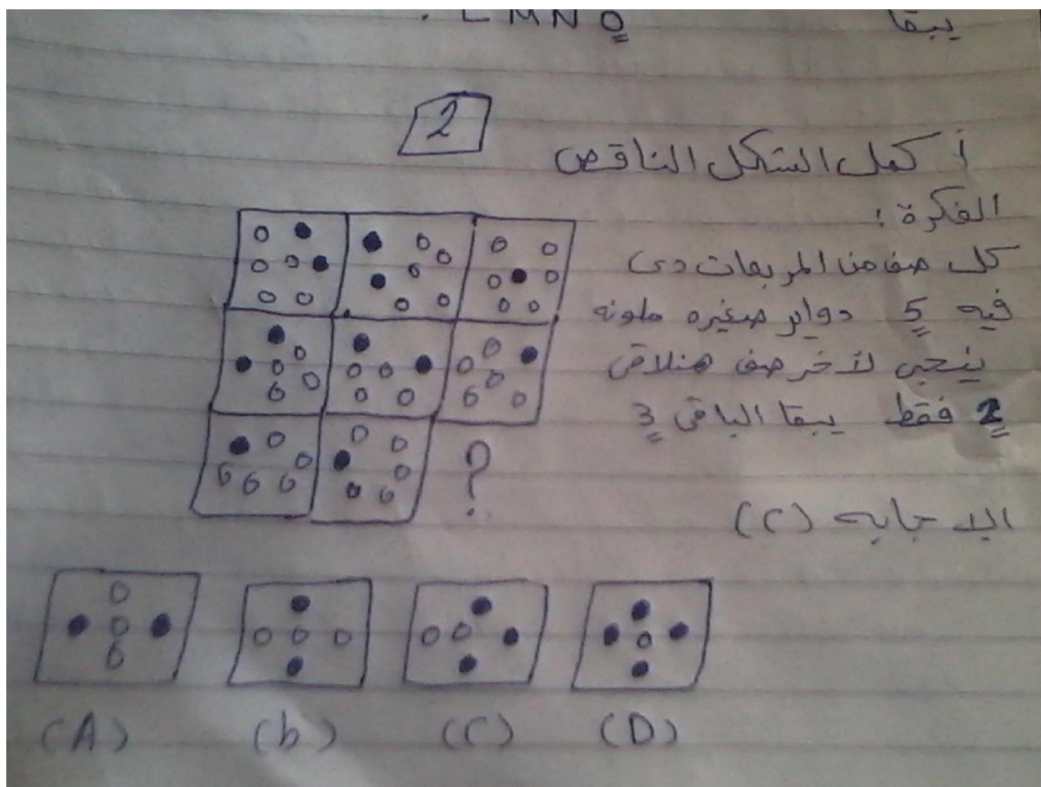 . L M N O يبقا
2
أكمل الشكل الناقص
الفكرة :
كل صف من المربعات دى
فيه 5 دواير صغيره ملونه
ينجى لآخر صف هنلاقى
2 فقط يبقا الباقى 3
الاجابه (C)
?
(A) (b) (C) (D)